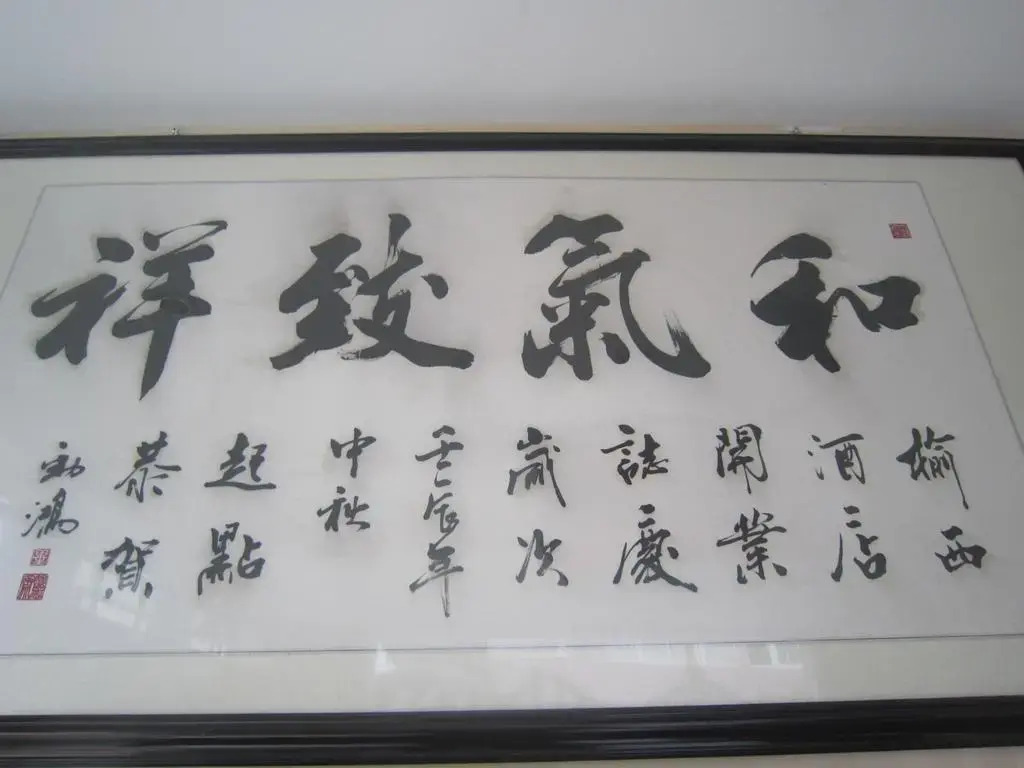 和氣致祥
榆西
酒店
開業
誌慶
歲次
壬辰年
中秋
起點
恭賀